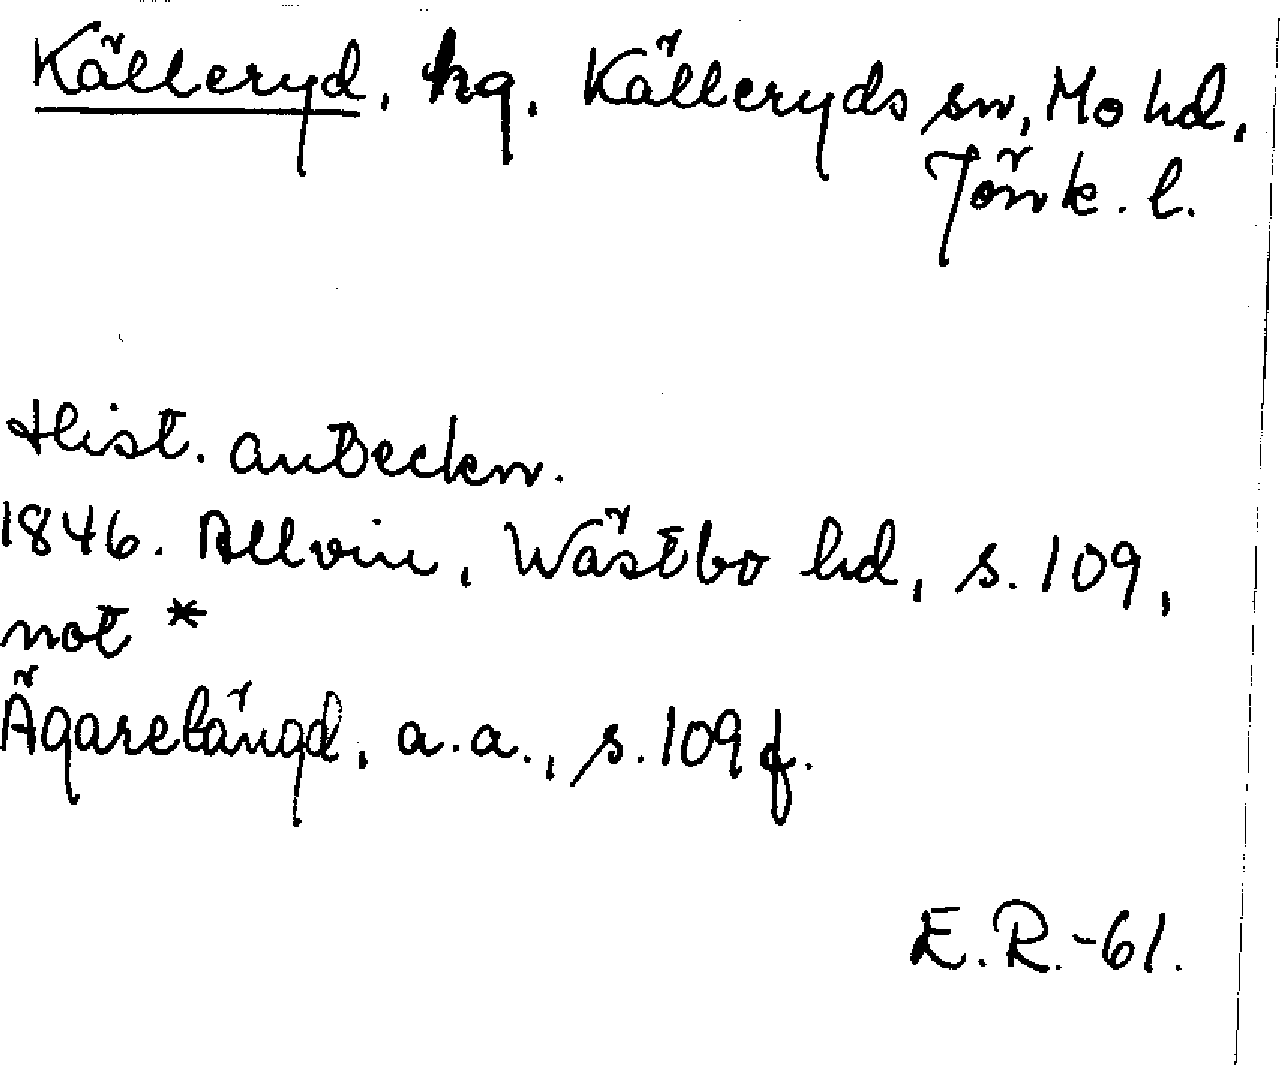 Källeryd, hg. Källeryds sn, Mo hd,
Jönk. l.
Hist. anteckn.
1846. Allvin, Wästbo hd, s. 109,
not *
Ägarelängd, a.a., s. 109 f.
E.R.-61.